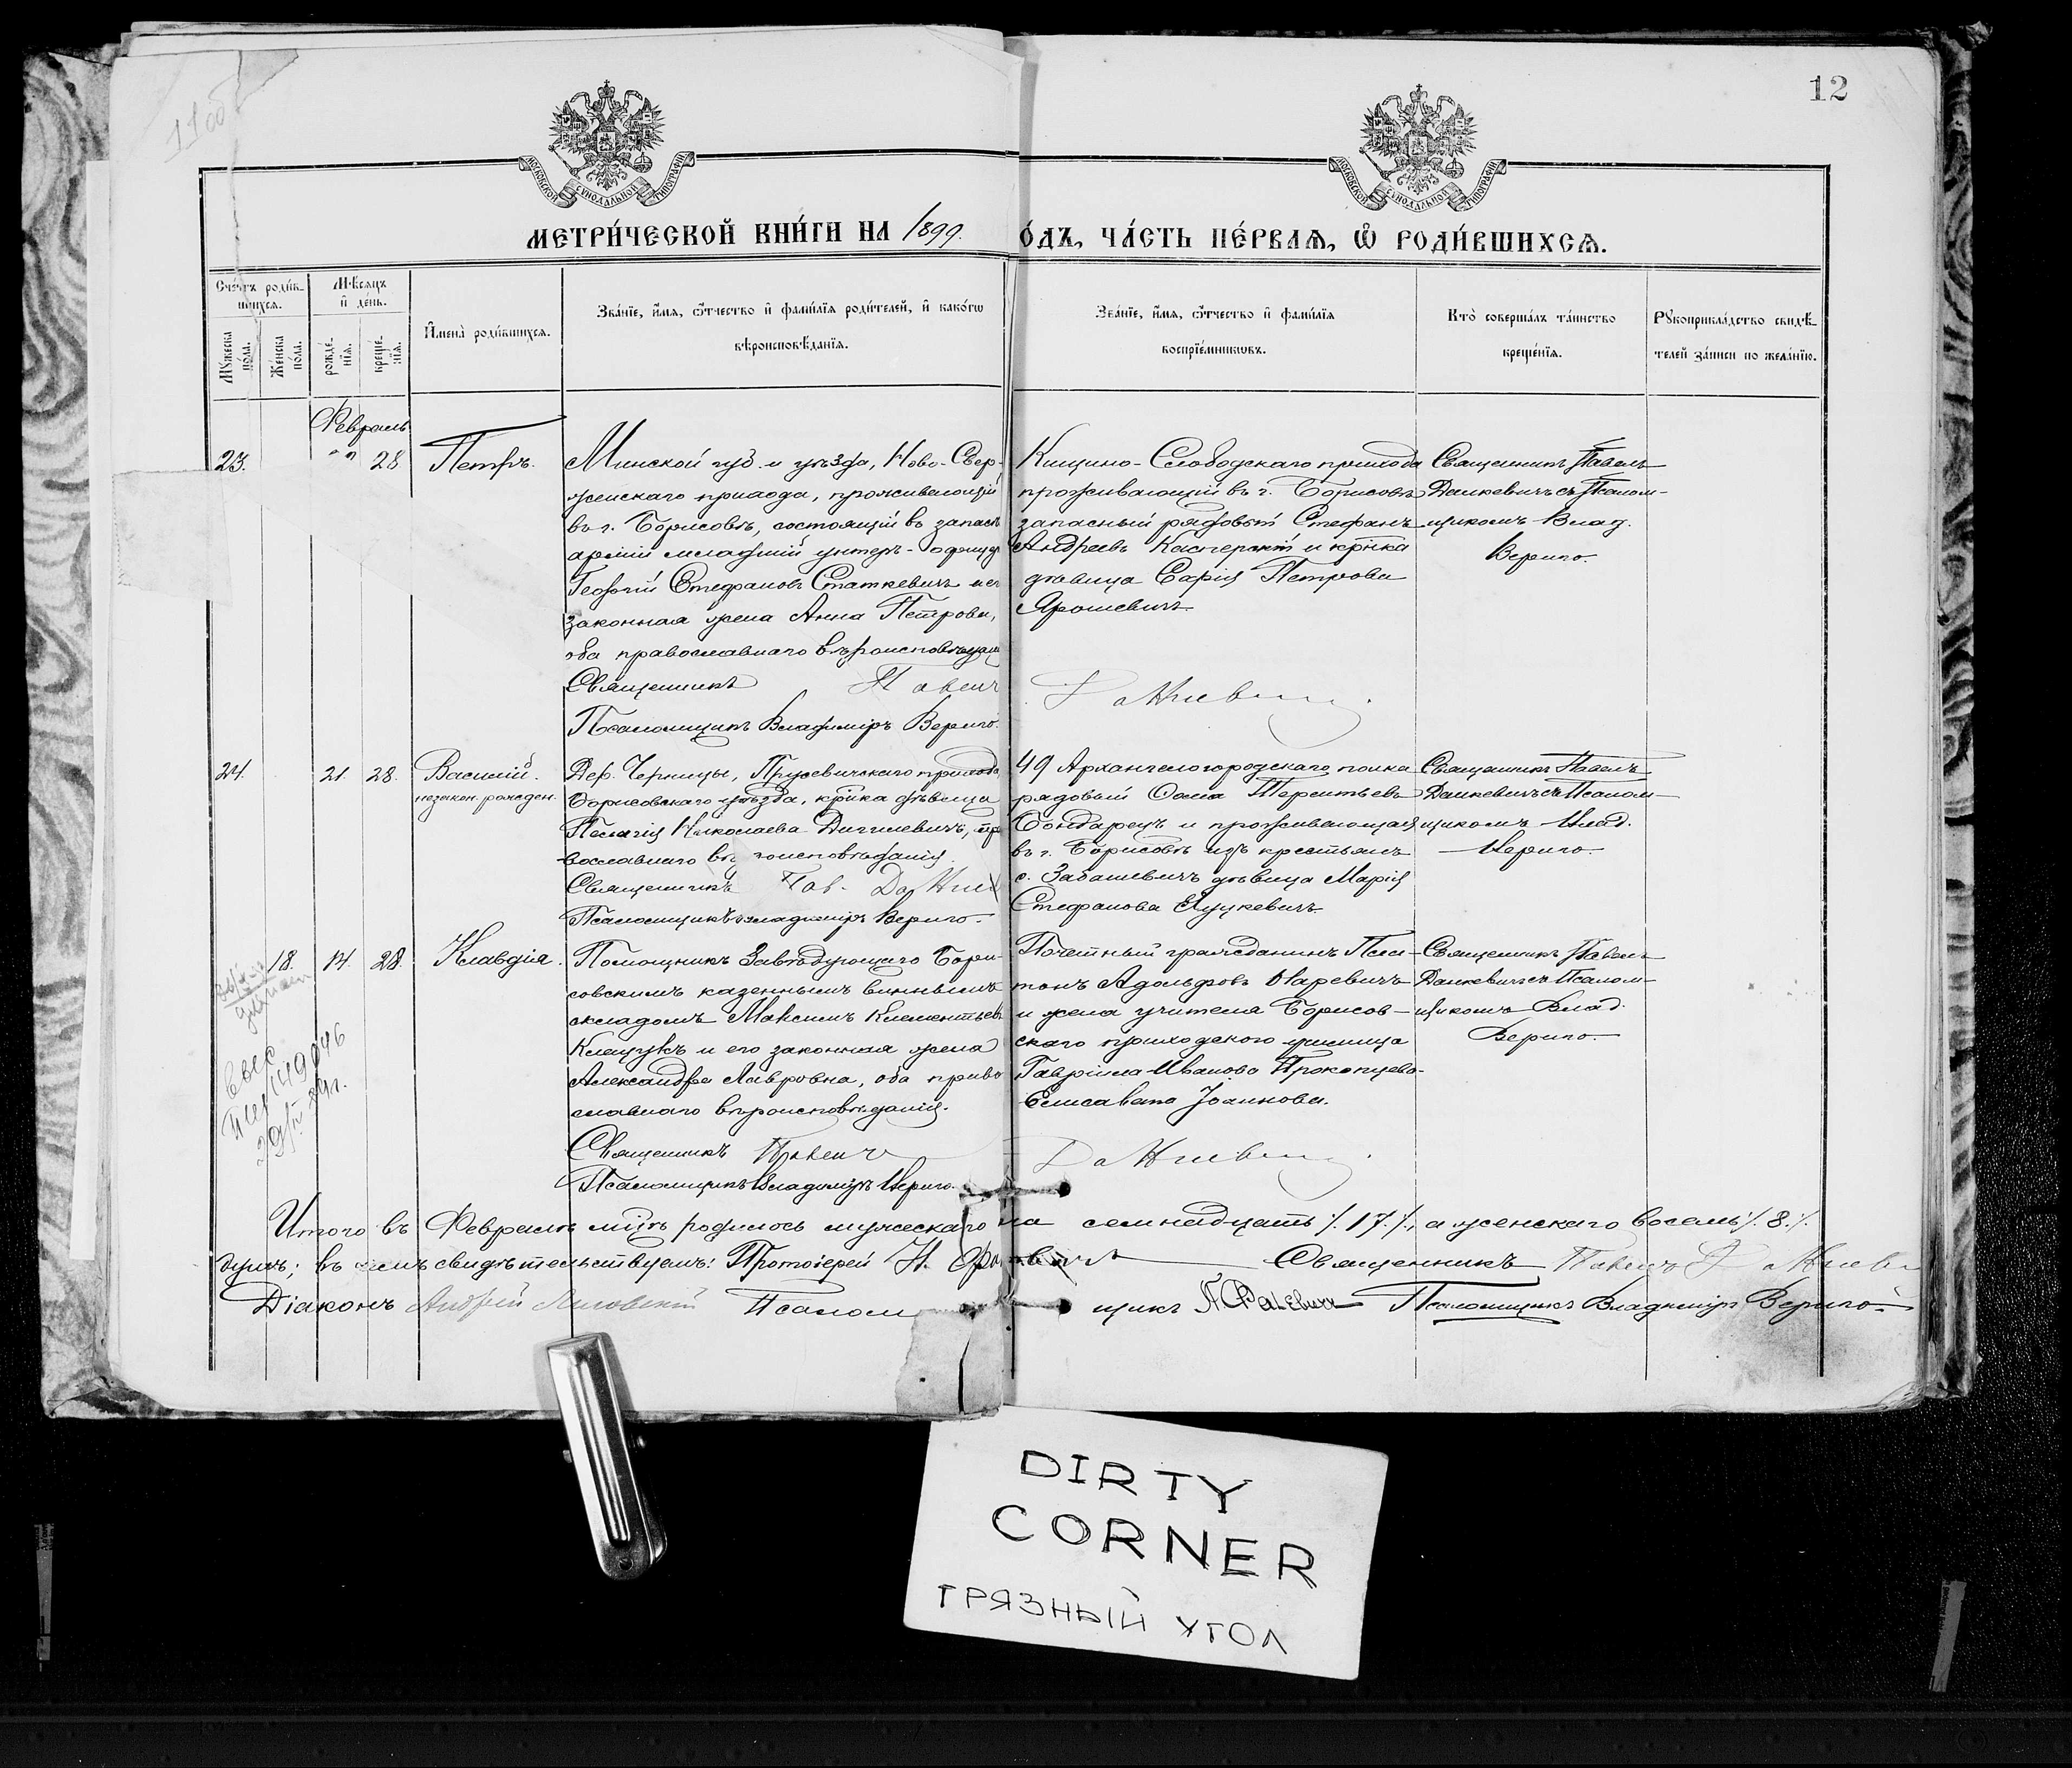 11об
12
МОСКОВСКОЙ СѴНОДАЛЬНОЙ ТИПОГРАФІИ
МОСКОВСКОЙ СѴНОДАЛЬНОЙ ТИПОГРАФІИ
МЕТРИ́ЧЕСКОЙ КНИ́ГИ НА 1899. О́ДЪ, ЧА́СТЬ ПЕ́РВАѦ, Ѡ҆ РОДИ́ВШИХСѦ.
Сче́тъ роди́в-
шихсѧ.
Мꙋ́жеска по́ла.
Же́нска по́ла.
Мѣ́сѧцъ и҆ де́нь.
рожде́-
нїѧ.
креще́-
нїѧ.
И҆мена̀ роди́вшихсѧ.
Зва́нїе, и҆́мѧ, ѻ҆́тчество и҆ фами́лїѧ роди́телей, и҆ како́гѡ
вѣроисповѣ́данїѧ.
Зва́нїе, и҆́мѧ, ѻ҆́тчество и҆ фами́лїѧ
воспрїе́мникѡвъ.
Кто̀ соверша́лъ та́инство
креще́нїѧ.
Рꙋкоприкла́дство свидѣ́-
телей за́писи по жела́нїю.
Февраль
23. " " 28 Петръ.
Минской губ. и уѣзда, Ново-Свер-
женскаго прихода, проживающій
въ г. Борисовѣ, состоящій въ запасѣ
арміи младшій унтеръ-офицер
Георгій Стефановъ Статкевичъ и ег
законная жена Анна Петрова,
оба православнаго вѣроисповѣдан
Священникъ Павелъ
Псаломщикъ Владиміръ Вериго.
Кищино-Слободскаго прихода
проживающій въ г. Борисовѣ
запасный рядовой Стефанъ
Андреевъ Касперскій и кр҃нка
дѣвица Марія Петрова
Ярошевичъ.
Данкевич.
Священникъ Павелъ
Данкевичъ съ Псалом-
щикомъ Влад.
Вериго.
24. 21. 28. Василій.
незакон. рожден.
Дер. Черницы, Прусевичскаго прихода,
Борисовскаго уѣзда, кр҃нка дѣвица
Пелагія Николаева Дичилевичъ, пр
вославнаго вѣроисповѣданія.
Священникъ Пав. Данке
Псаломщикъ Владиміръ Вериго.
49 Архангелогородскаго полка
рядовый Сама Терентьевъ
Бондарецъ и проживающая
въ г. Борисовѣ изъ крестьянъ
с. Забашевичъ дѣвица Марія
Стефанова Луцкевичъ.
Священникъ Павелъ
Данкевичъ съ Псалом-
щикомъ Влад.
Вериго.
18. 14. 28. Клавдія.
Помощникъ Завѣдующаго Бори-
совскимъ казеннымъ виннымъ
складомъ Максимъ Климентьев
Клещукъ и его законная жена
Александра Лавровна, оба право
славнаго вѣроисповѣданія.
Священникъ Павелъ
Псаломщикъ Владиміръ Вериго.
Почетный гражданинъ Пла-
тонъ Адольфовъ Наревичъ
и жена учителя Борисов-
скаго приходскаго училища
Гавріила Иванова Прокопцева
Елисавета Іоаннова.
Данкевич.
Священникъ Павелъ
Данкевичъ съ Псалом-
щикомъ Влад.
Вериго.
Итого въ Февралѣ мц҃ѣ родилось мужескаго по семнадцать ⁒ 17 ⁒, а женскаго восемь ⁒ 8 ⁒
душъ; въ чемъ свидѣтельствуемъ: Протоіерей Священникъ Павелъ Данкев
Діаконъ Андрей Псалом щикъ Псаломщикъ Владиміръ Вериго.
DIRTY
CORNER
ГРЯЗНЫЙ УГОЛ